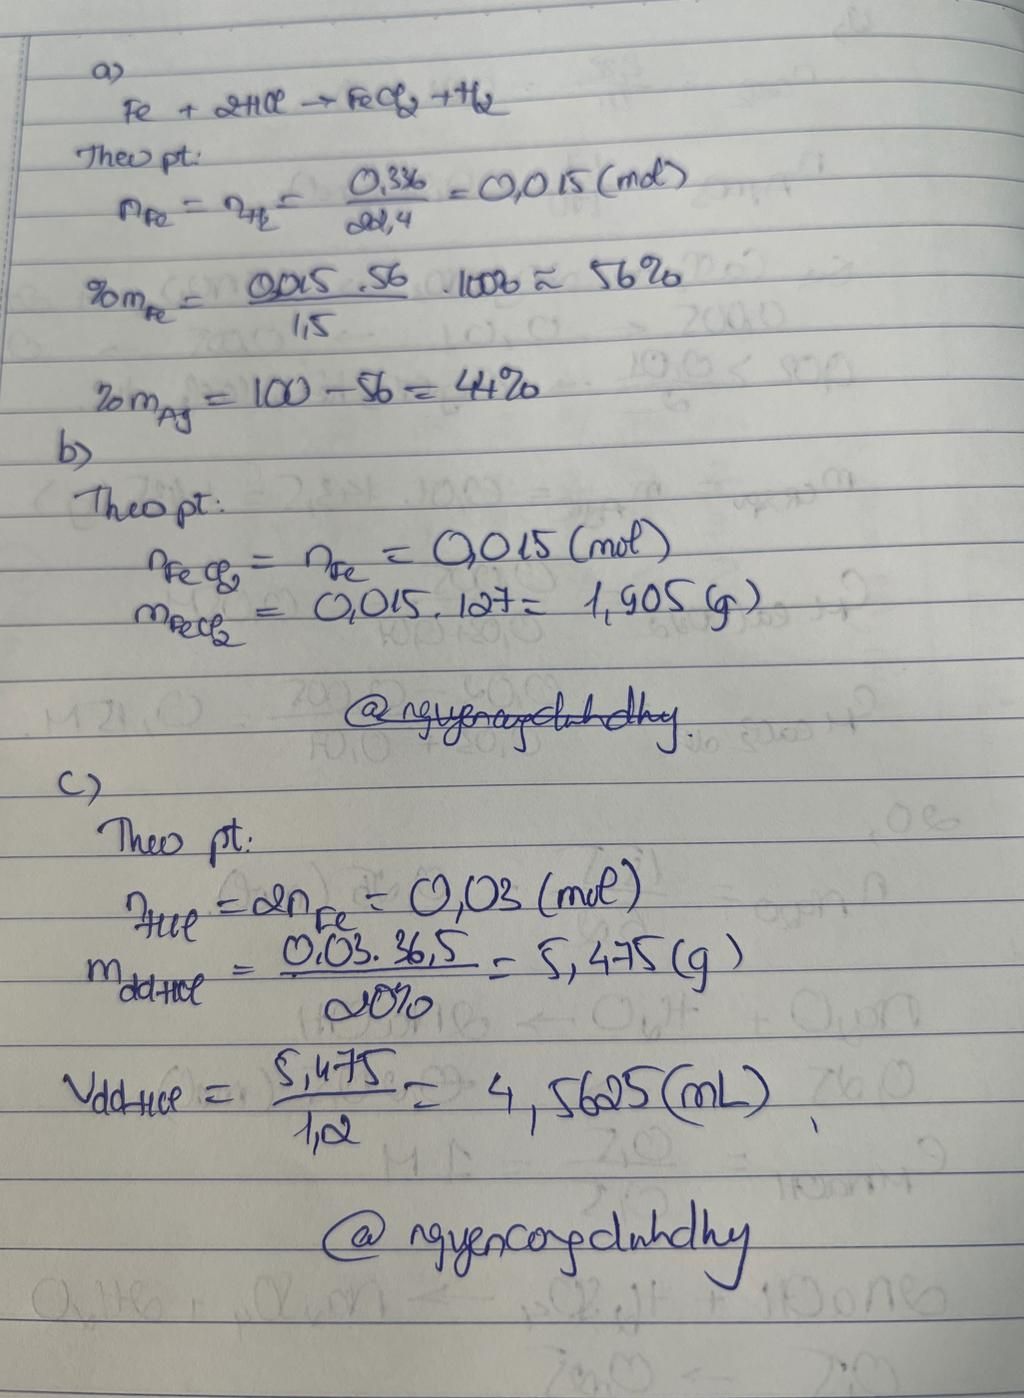 a)
Fe + 2HCl → FeCl2 + H2
Theo pt:
nFe = nH2 = 0,336 / 22,4 = 0,015 (mol)
%mFe = 0,015 . 56 / 1,5 . 100% ≈ 56%
%mAg = 100 - 56 = 44%
b)
Theo pt:
nFeCl2 = nFe = 0,015 (mol)
mFeCl2 = 0,015 . 127 = 1,905 (g)
c)
Theo pt:
nHCl = 2nFe = 0,03 (mol)
mddHCl = 0,03 . 36,5 / 20% = 5,475 (g)
VddHCl = 5,475 / 1,2 = 4,5625 (mL)